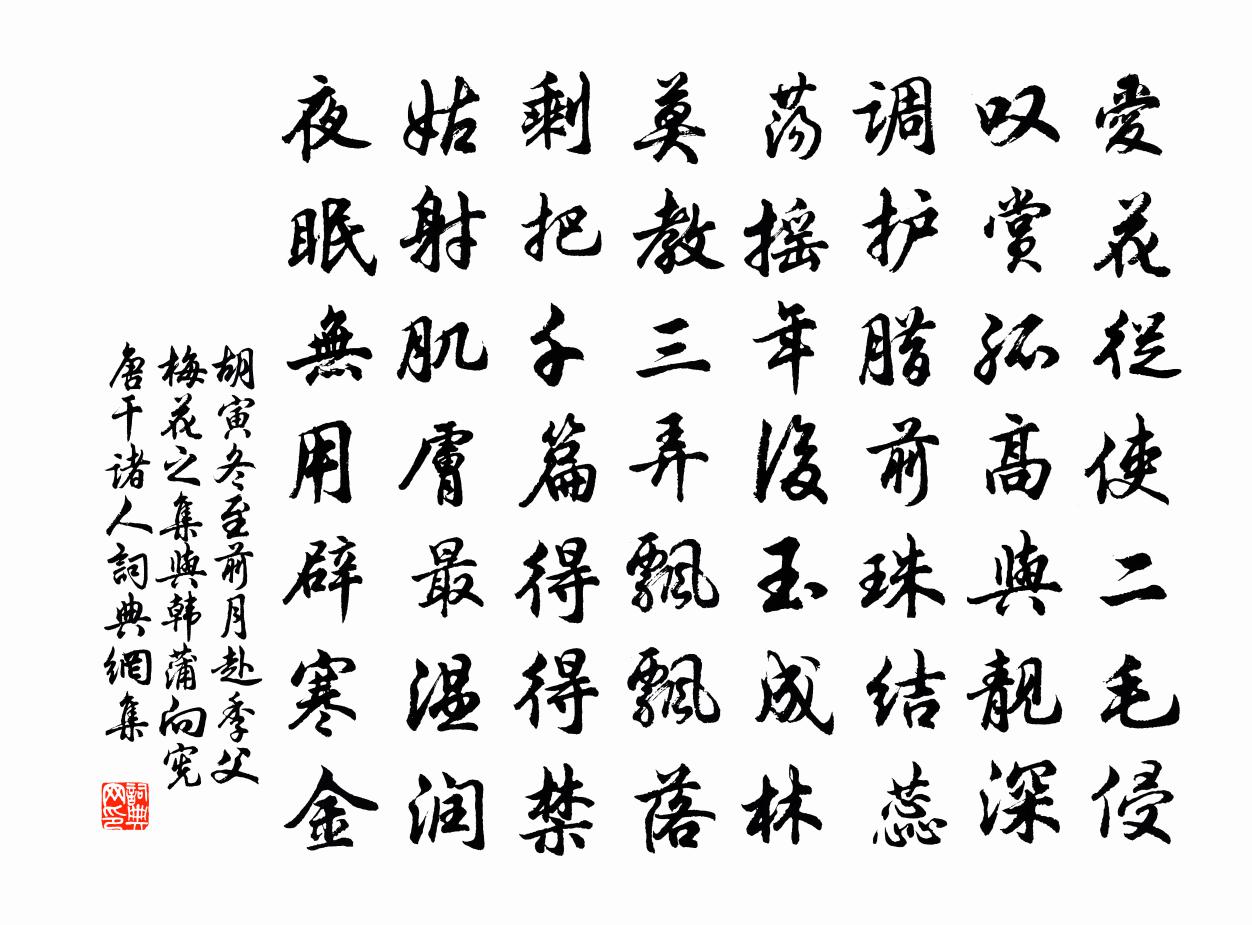 愛花從使二毛侵
叹赏孤高與靚深
调护腊前珠结蕊
荡摇年後玉成林
莫教三弄飘飘落
剩把千篇得得禁
姑射肌膚最温润
夜眠無用辟寒金
胡寅冬至前月赴季父
梅花之集與韩蒲向宪
唐干诸人詞典網集
詞典网印